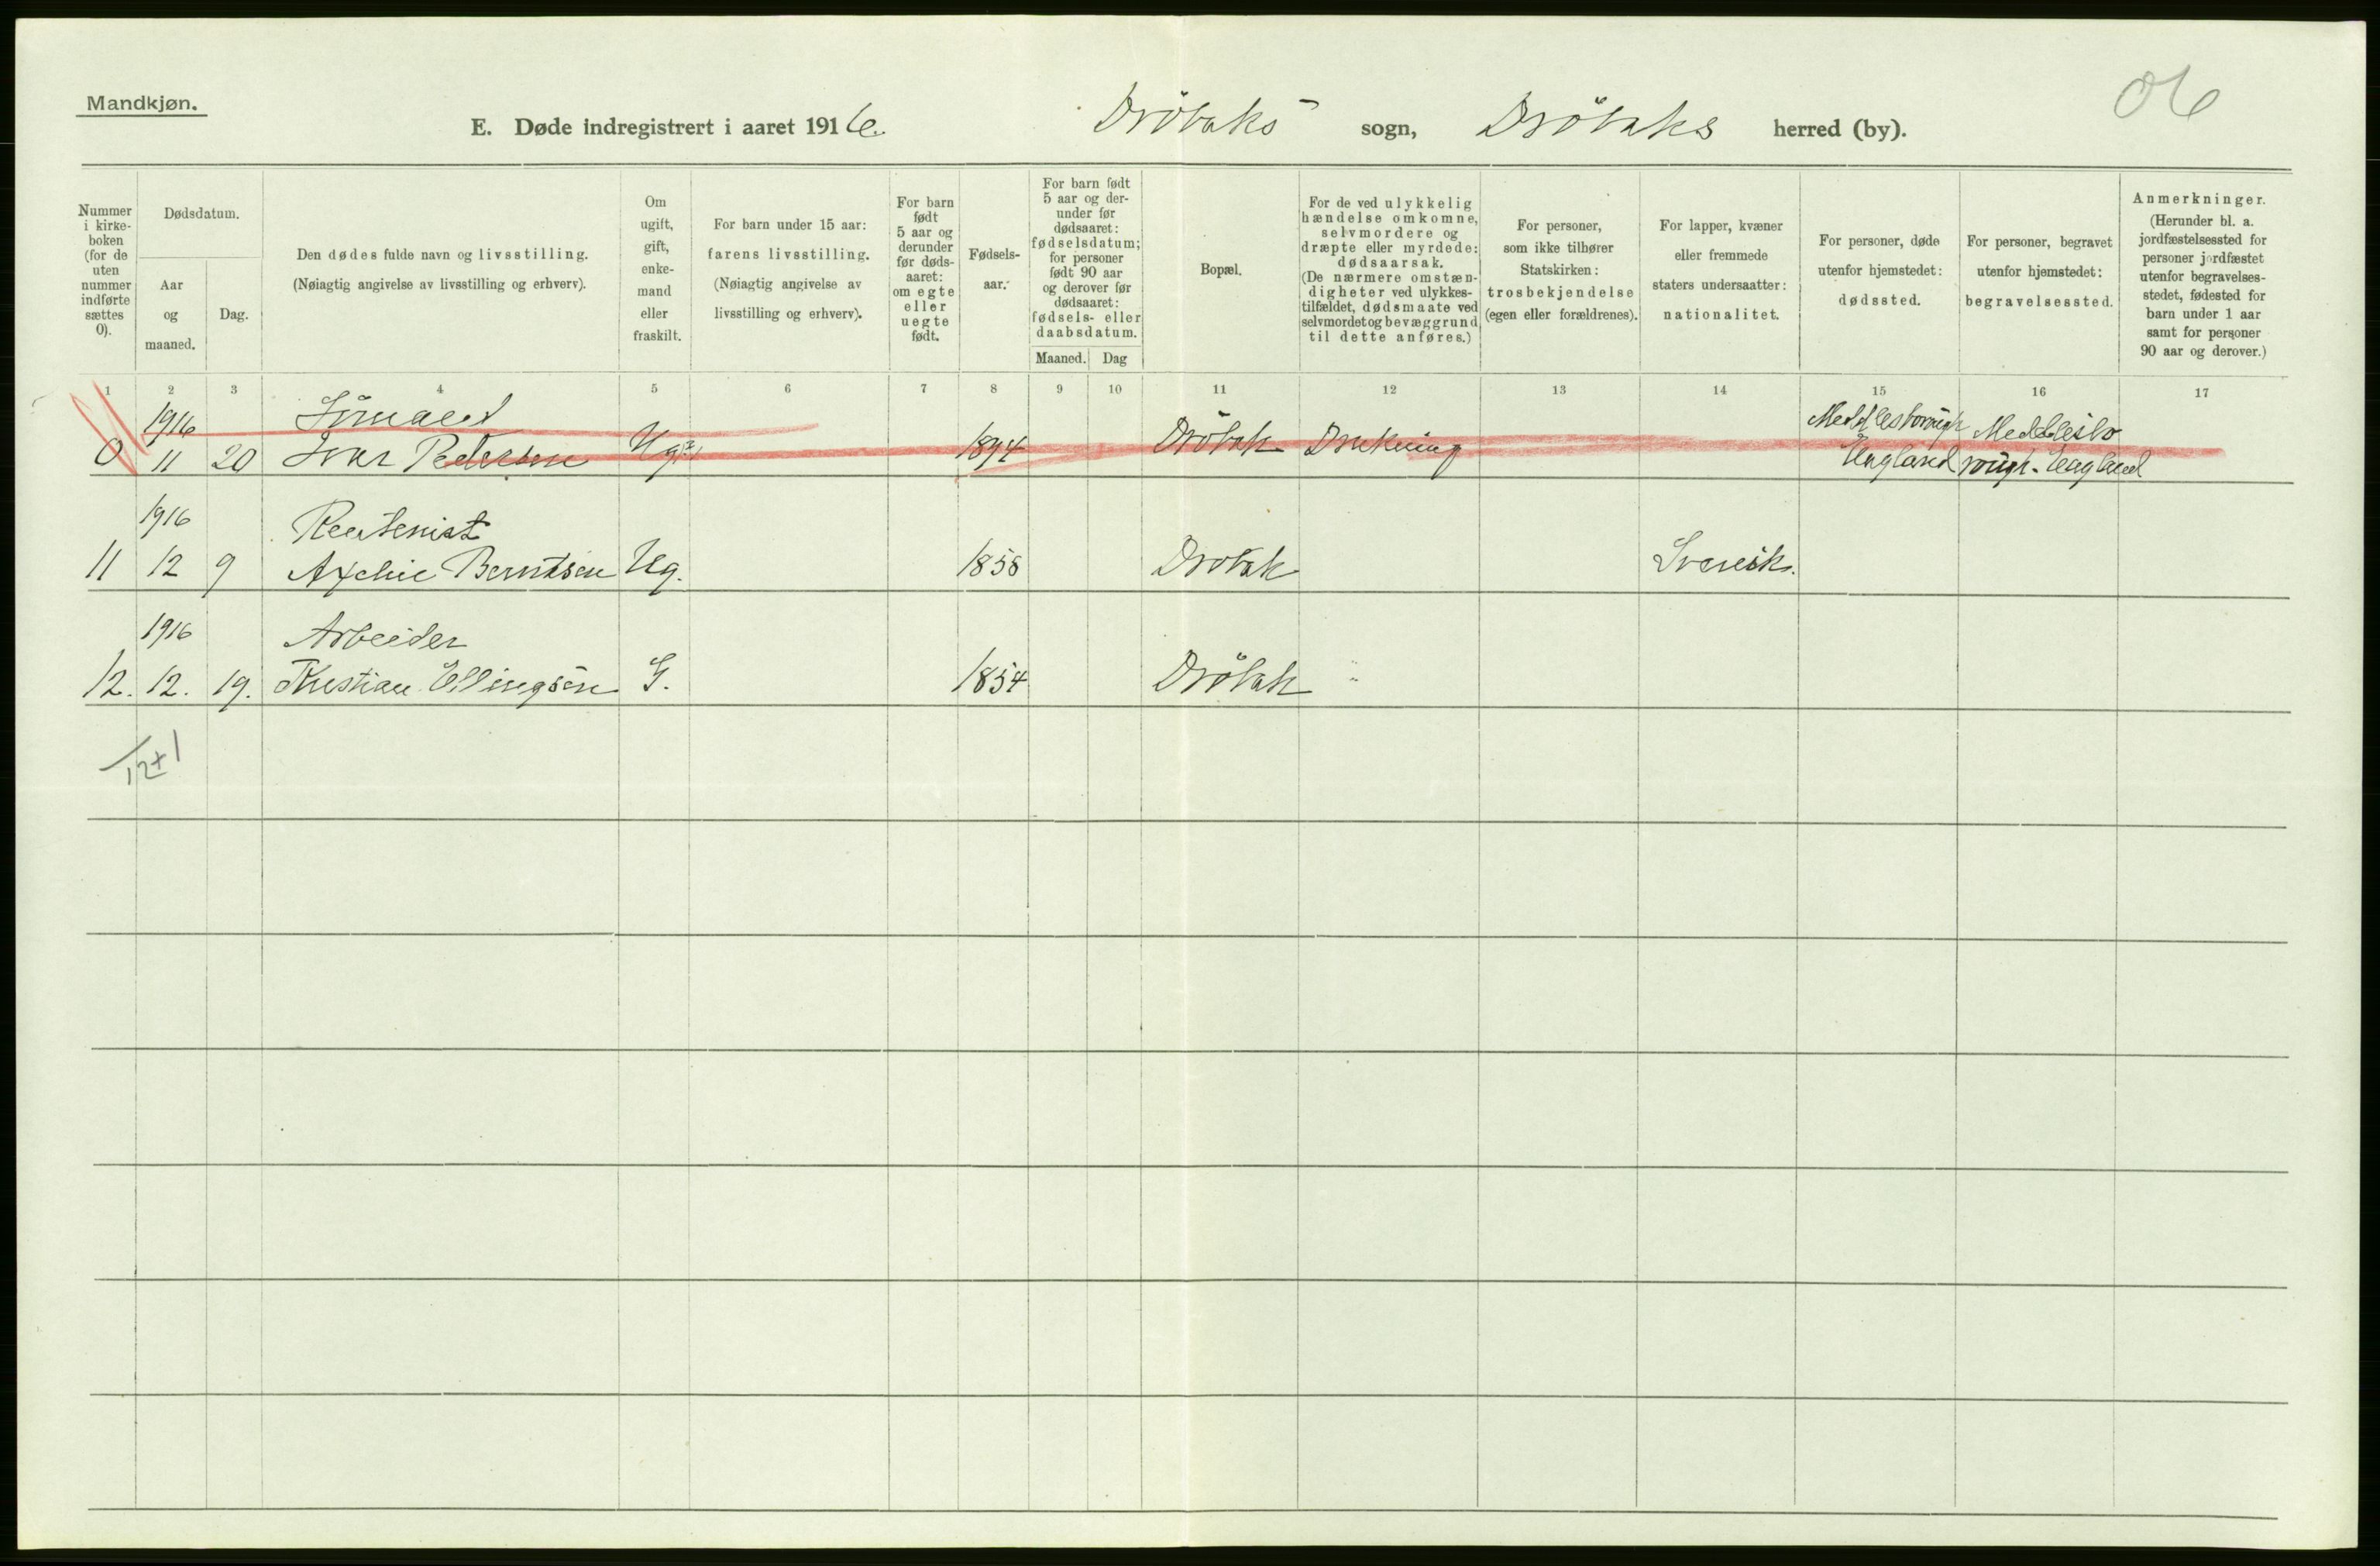 Mandkjøn.
06
E. Døde indregistrert i aaret 1916. Drøbaks sogn, Drøbaks herred (by).
Nummer
i kirke-
boken
(for de
uten
nummer
indførte
sættes
0).
Dødsdatum.
Aar
og
maaned.
Dag.
Den dødes fulde navn og livsstilling.
(Nøiagtig angivelse av livsstilling og erhverv).
Om
ugift,
gift,
enke-
mand
eller
fraskilt.
For barn under 15 aar:
farens livsstilling.
(Nøiagtig angivelse av
livsstilling og erhverv).
For barn
født
5 aar og
derunder
før døds-
aaret:
om egte
eller
uegte
født.
Fødsels-
aar.
For barn født
5 aar og der-
under før
dødsaaret:
fødselsdatum;
for personer
født 90 aar
og derover før
dødsaaret:
fødsels- eller
daabsdatum.
Maaned. Dag
Bopæl.
For de ved ulykkelig
hændelse omkomne,
selvmordere og
dræpte eller myrdede:
dødsaarsak.
(De nærmere omstæn-
digheter ved ulykkes-
tilfældet, dødsmaate ved
selvmordet og bevæggrund
til dette anføres.)
For personer,
som ikke tilhører
Statskirken:
trosbekjendelse
(egen eller forældrenes).
For lapper, kvæner
eller fremmede
staters undersaatter:
nationalitet.
For personer, døde
utenfor hjemstedet:
dødssted.
For personer, begravet
utenfor hjemstedet:
begravelsessted.
Anmerkninger.
(Herunder bl. a.
jordfæstelsessted for
personer jordfæstet
utenfor begravelses-
stedet, fødested for
barn under 1 aar
samt for personer
90 aar og derover.)
1 2 3 4 5 6 7 8 9 10 11 12 13 14 15 16 17
1916 Sömand Meddlesborough Meddlesbo
0 11 20 Ivar Pedersen Ugift 1894 Drøbak Drukning England rough. England
1916 Rentenist
11 12 9 Berntsen Ug. 1858 Drøbak Svensk.
1916 Arbeider
12. 12. 19. Kristian Ellingsen G. 1854 Drøbak "
12+1